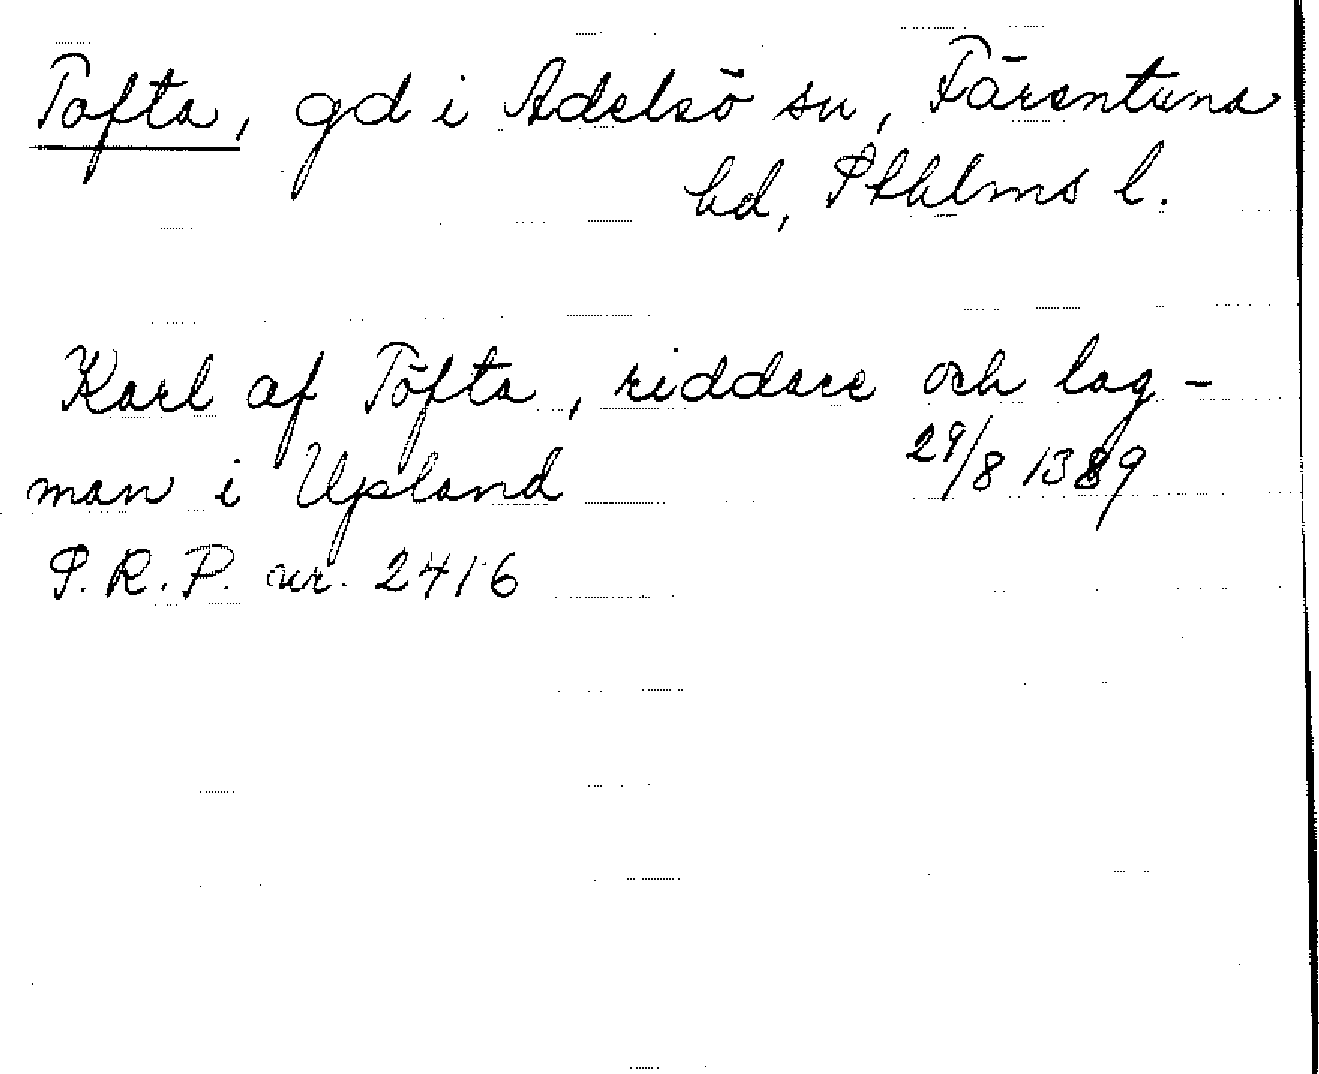 Tofta, gd i Adelsö sn, Färentuna
hd, Sthlms l.
Karl af Töfta, riddare och lag-
man i Upland 29/8 1389
S.R.P. nr. 2416